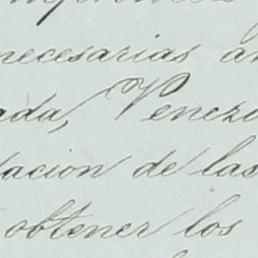 necesarias a
ada, Venez
tacion de las
obtener los